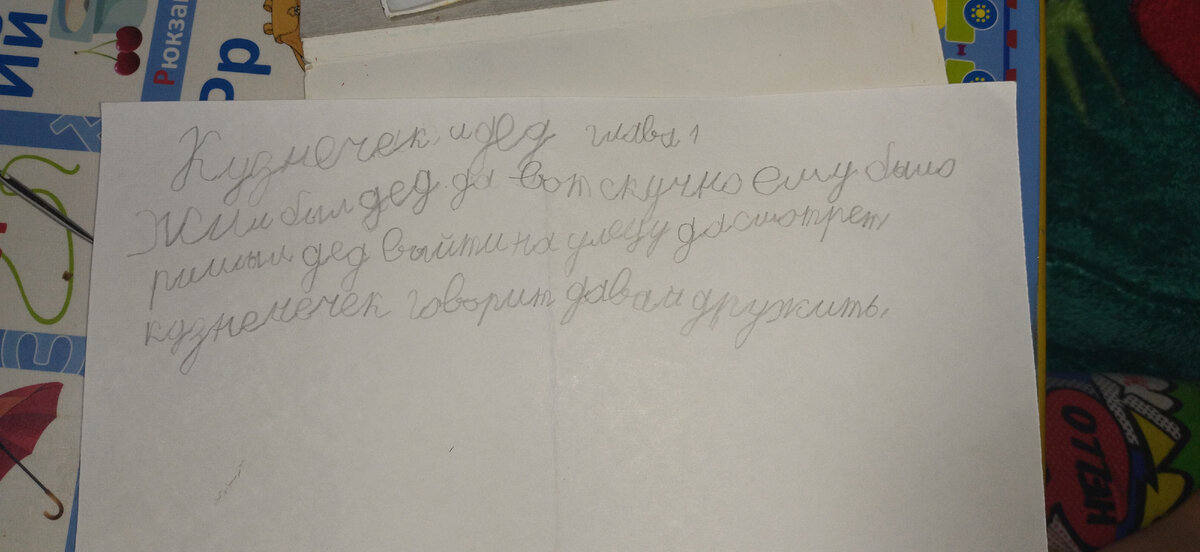 ий
Рюкза
Рр
Кузнечек и дед глава 1
Жил был дед да вот скучно ему было
ришыл дед выйти на улецу да смотрет
кузнемечек говорит давай дружить.
ОТПАД